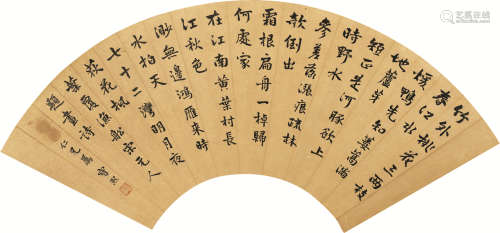 竹外桃花三兩枝
春江水
暖鴨先知蔞蒿滿
地蘆芽
短正是河豚欲上
時野水
參差落漲痕疏林
欹倒出
霜根扁舟一棹歸
何處家
在江南黃葉村長
江秋色
渺無邊鴻雁來時
水拍天
七十二灣明月夜
荻花楓
葉覆漁船宋元人
題畫詩
仁兄屬 寶熙